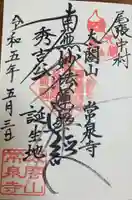 尾張中村
太閤山
常泉寺
南無妙法蓮華経
秀吉公
誕生地
令和五年五月三日